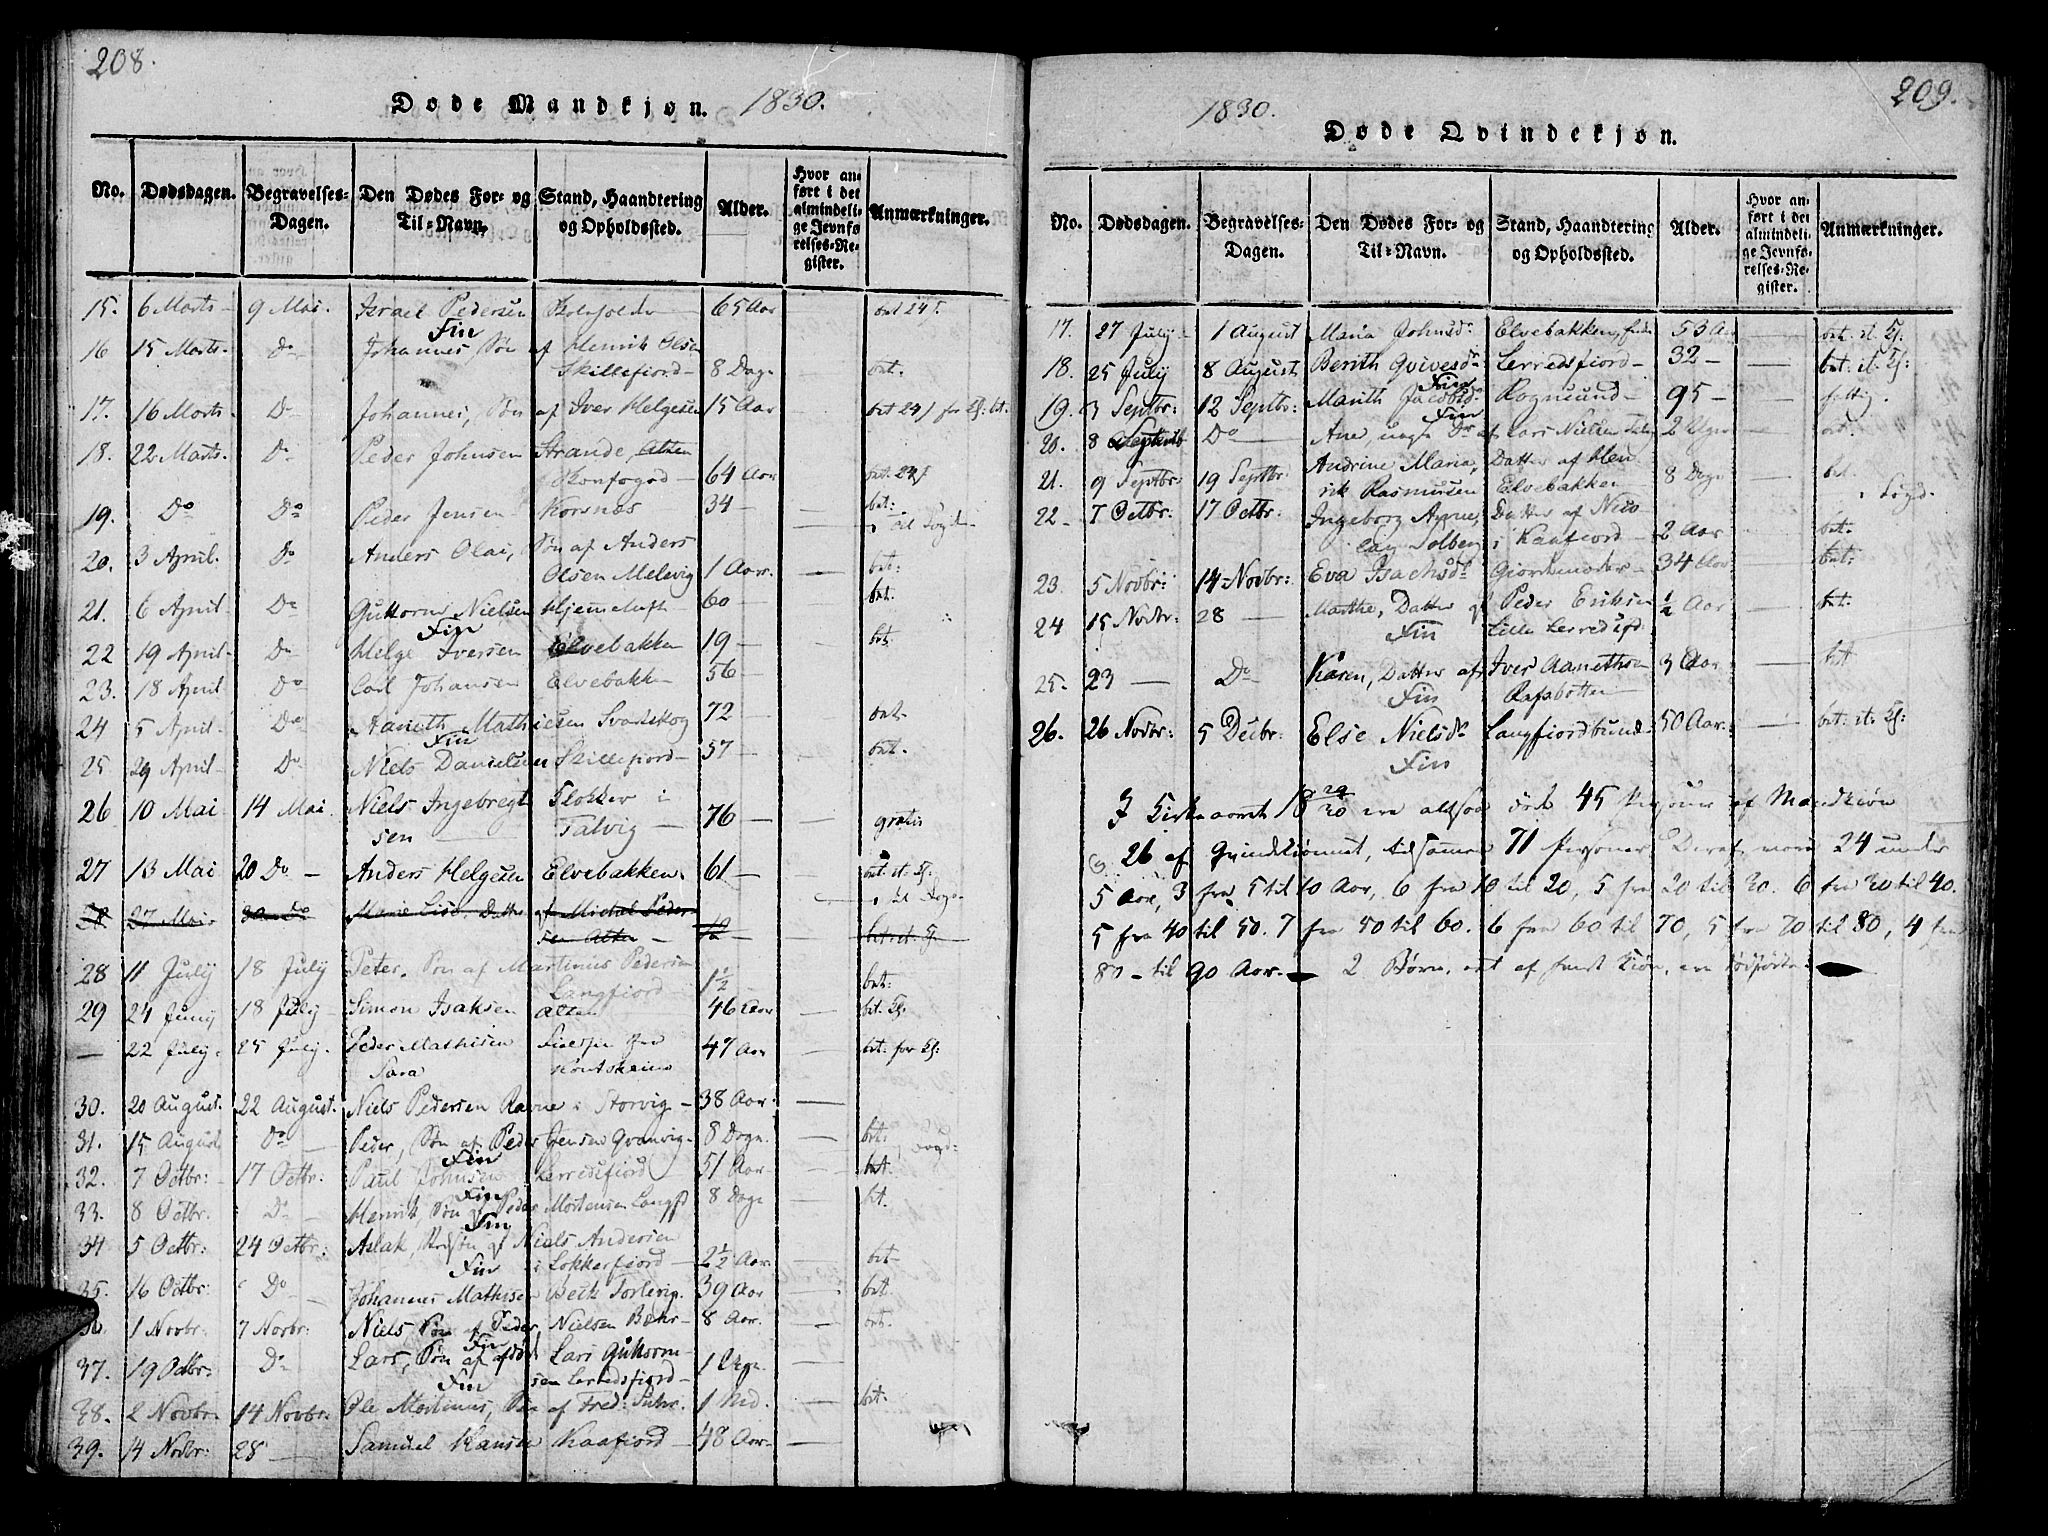 208.
Døde Mandkjøn. 1830.
No. Dødsdagen. Begravelses-Dagen. Den Dødes For- og Til-Navn. Stand, Haandtering og Opholdssted. Alder. Hvor anført i det almindelige Jevnførelses-Register. Anmærkninger.
15. 6 Marts - 9 Mai. Israel Pedersen 65 Aar
Fin
16 15 Marts. Do Johannes, Søn af Henrik Olsen
Skillefiord - 8 Dage bet.
17. 16 Marts. Do Johannes, Søn af Iver Helgesen 15 Aar
18. 22 Marts. Do Peder Johnsen Strande, Alten
64 Aar
19. Do Do Peder Jensen Korsnæs 34 - bet:
20. 3 April. Do Anders Olai, Søn af Anders
Olsen Melsvig 1 Aar. - bet:
21. 6 April - Do Guttorm Nielsen Hjemeluft 60 - bet.
Fin
22 19 April - Do Helge Iversen Elvebakken 19 - bet.
23. 18 April Do Carl Johansen Elvebakken 56 -
24 5 April - Do Aaneth Mathiesen Svartskog 72 - bet.
Fin
25 29 April - Do Niels Danielsen Skillefiord - 57 - bet.
26 10 Mai 14 Mai. Niels Ingebregt Klokker i
sen - Talvig - 76 - gratis
27 13 Mai 20 Do - Anders Helgesen Elvebakken. 61 -
28 27 Mai - 30 Do Marie Lisa, Datter af Michal Peder
sen Alten -
28 11 July 18 July Peter, Søn af Martinus Pedersen
Langfiord 1½ - bet:
29 24 Juny 18 July - Simon Isaksen Alten 46 Aar bet.
- 22 July. 25 July. Peder Mathisen 47 Aar bet: for
Sara
30. 20 August. 22 August. Niels Pedersen Ravne i Storvig - 38 Aar.
31. 15 August Do - Peder, Søn af Peder Jensen Qvænvig - 8 Dage. bet.
Fin
32. 7 Octbr: 17 Octbr: Paul Johnsen Lerredsfiord 51 Aar bet.
Fin
33. 8 Octbr. Do - Henrik, Søn af Peder Mortensen Langfd 8 Dage bet.
Fin
34 5 Octbr: 24 Octbr: Aslak, af Niels Andersen
Fin i Lokkerfiord - 2½ Aar. bet
35. 16 Octbr: Do Johannes Mathisen 39 Aar bet.
36 1 Novbr. 7 Novbr: Niels, Søn af Peder Nielsen 8 Aar. bet.
Fin
37. 19 Octbr. Do Lars, Søn af afdøde Lars Guttorm-
Fin sen Lerredsfiord - 1 Uge
38. 2 Novbr. 14 Novbr. Ole Mortinus, Søn af Fred: Suhr. 1 Md. bet.
39. 14 Novbr: 28 - Samuel Hansen Kaafiord - 48 Aar -
209.
1830. Døde Qvindekjøn.
No. Dødsdagen. Begravelses-Dagen. Den Dødes For- og Til-Navn. Stand, Haandtering og Opholdssted. Alder. Hvor anført i det almindelige Jevnførelses-Register. Anmærkninger.
17. 27 July - 1 August Maria Johnsd: Elvebakken, 53 Aar
18. 25 July 8 August Berith Qvivesdr Lerredsfiord - 32 -
Fin
19. 3 Septbr: 12 Septbr: Marith Jacobsd. Rognsund - 95 - fattig.
Fin
20. 8 Septemb Do Ane, Dr af Lars Nielsen 2 Uger bet.
21. 9 Septbr: 19 Septbr. Andrine Maria, Datter af Hen
rik Rasmussen Elvebakken 8 Dage bet.
22 - 7 Octbr: 17 Octbr: Ingeborg Anne, Datter af Nico
lay Solberg i Kaafiord - 2 Aar bet.
23. 5 Novbr: 14 Novbr: Eva Isachsdr Giordemoder - 34 Aar bet:
24 15 Novbr: 28 - Marthe, Datter af Peder Eriksen ½ Aar bet.
Fin Lille Lerredsfd.
25. 23 - Do Karen, Datter af Iver Aanethsen 3 Aar bet.
Fin Rafsbotten
26. 26 Novbr: 5 Decbr: Else Nielsdr Langfiordbund - 50 Aar.
Fin
I Kirkeaaret 18 29/30 ere altsaa døde 45 Personer af Mandkiøn
og 26 af Qvindekiønnet, tilsammen 71 Personer. Deraf 24 under
5 Aar, 3 fra 5 til 10 Aar, 6 fra 10 til 20, 5 fra 20 til 30. 6 fra 30 til 40.
5 fra 40 til 50. 7 fra 50 til 60. 6 fra 60 til 70, 5 fra 70 til 80, 4 fra
80 - til 90 Aar. - 2 Børn, et af hvert Kiøn, ere dødfødte.